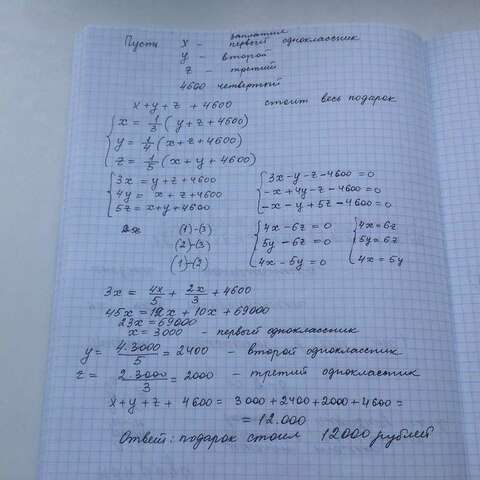 заплатил
Пусть x – первый одноклассник
y – второй
z – третий
4600 четвертый
x+y+z+4600 стоит весь подарок
x = 1/3 (y+z+4600)
y = 1/4 (x+z+4600)
z = 1/5 (x+y+4600)
3x = y+z+4600 3x-y-z-4600=0
4y = x+z+4600 -x+4y-z-4600=0
5z = x+y+4600 -x-y+5z-4600=0
(1)-(3) 4x-6z=0 4x=6z
(2)-(3) 5y-6z=0 5y=6z
(1)-(2) 4x-5y=0 4x=5y
3x = 4x/5 + 2x/3 + 4600
45x = 12x + 10x + 69000
23x = 69000
x = 3000 – первый одноклассник
y = 4·3000/5 = 2400 – второй одноклассник
z = 2·3000/3 = 2000 – третий одноклассник
x+y+z+4600 = 3000+2400+2000+4600 =
= 12.000
Ответ: подарок стоил 12000 рублей